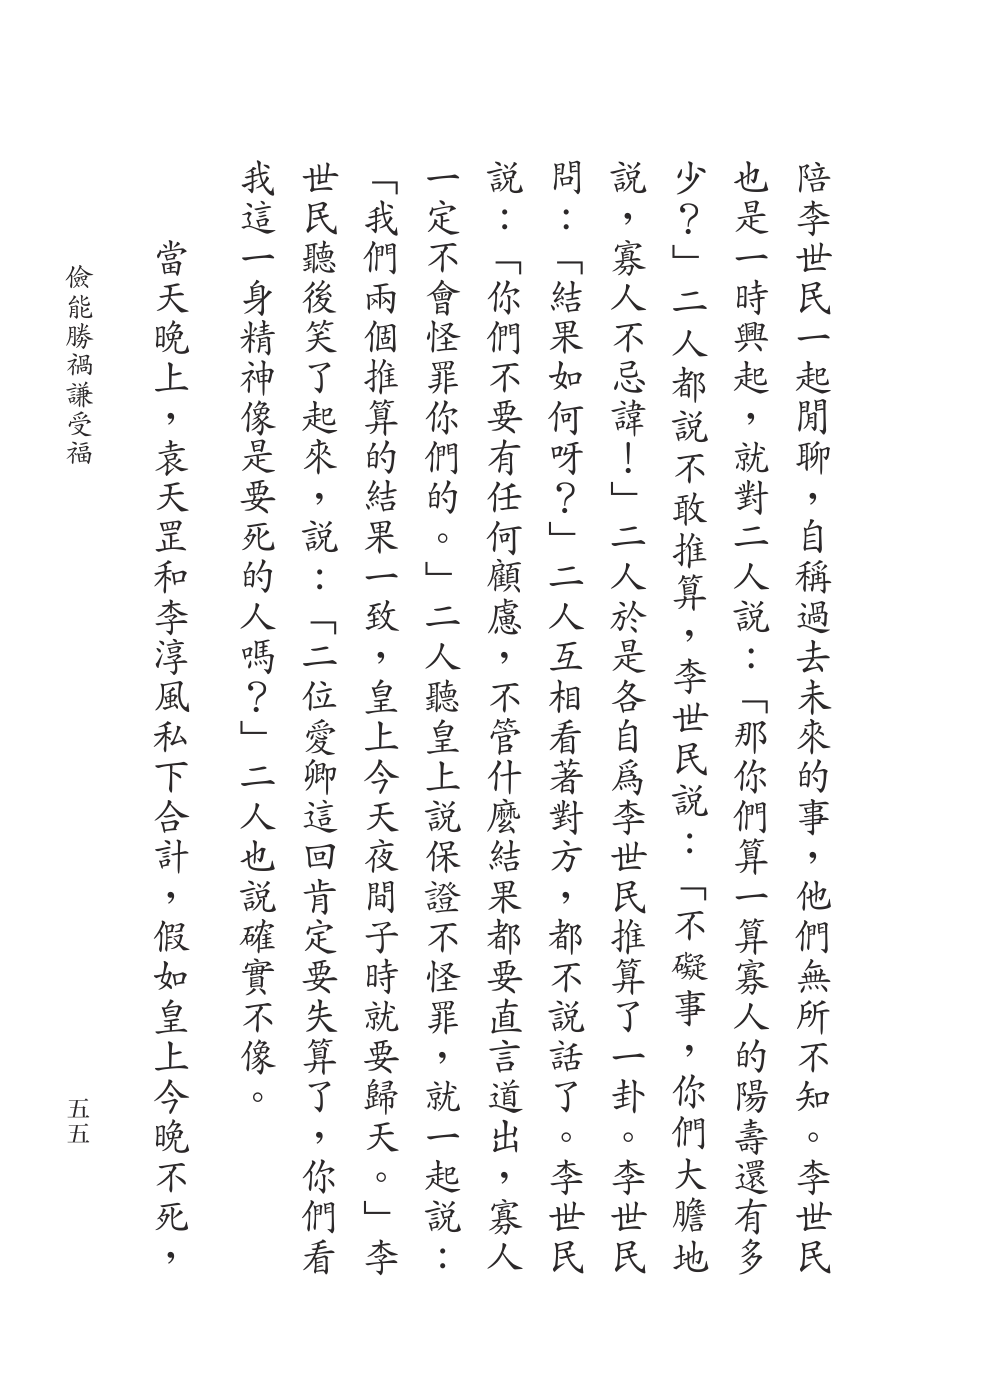 陪李世民一起閒聊，自稱過去未來的事，他們無所不知。李世民
也是一時興起，就對二人説：「那你們算一算寡人的陽壽還有多
少？」二人都説不敢推算，李世民説：「不礙事，你們大膽地
説，寡人不忌諱！」二人於是各自爲李世民推算了一卦。李世民
問：「結果如何呀？」二人互相看著對方，都不説話了。李世民
説：「你們不要有任何顧慮，不管什麼結果都要直言道出，寡人
一定不會怪罪你們的。」二人聽皇上説保證不怪罪，就一起説：
「我們兩個推算的結果一致，皇上今天夜間子時就要歸天。」李
世民聽後笑了起來，説：「二位愛卿這回肯定要失算了，你們看
我這一身精神像是要死的人嗎？」二人也説確實不像。
當天晚上，袁天罡和李淳風私下合計，假如皇上今晚不死，
儉能勝禍謙受福
五五